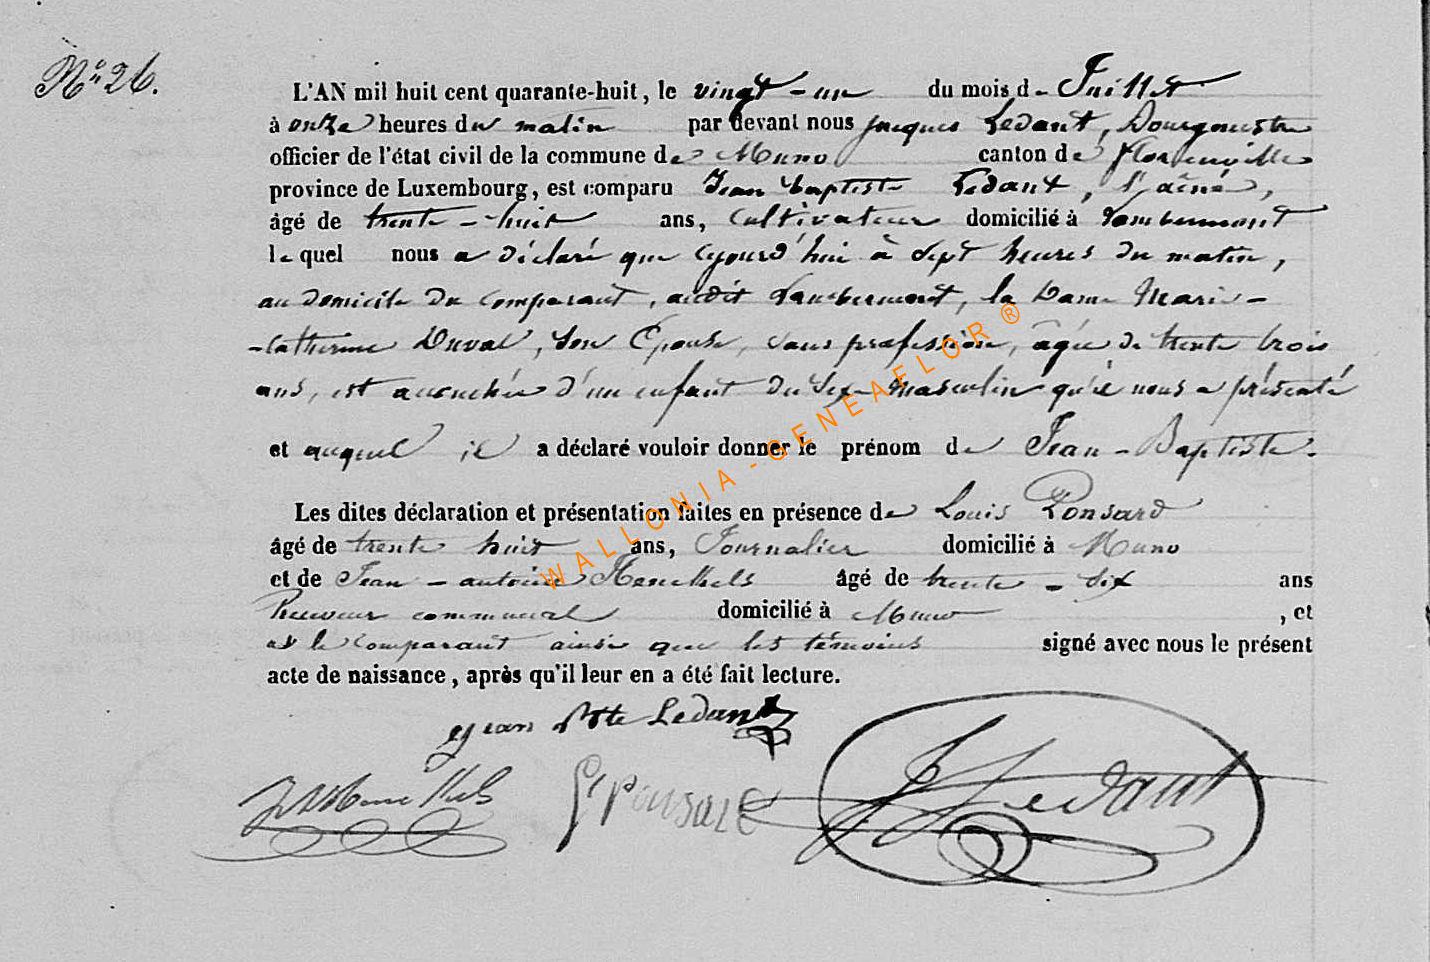 N° 26.
L'AN mil huit cent quarante-huit, le vingt-un du mois de Juillet
à onze heures du matin par devant nous Jacques Ledant, Bourgmestre
officier de l'état civil de la commune de Muno canton de Florenville
province de Luxembourg, est comparu Jean Baptiste Ledant, l'aîné,
âgé de trente-huit ans, Cultivateur domicilié à Lambermont
le quel nous a déclaré que cejourd'hui à sept heures du matin,
au domicile du comparant, audit Lambermont, la Dame Marie-
-Catherine Duval, son Epouse, sans profession, âgée de trente trois
ans, est accouchée d'un enfant du sexe masculin qu'il nous a présenté
et auquel il a déclaré vouloir donner le prénom de Jean-Baptiste.
Les dites déclaration et présentation faites en présence de Louis Ponsard
âgé de trente huit ans, Journalier domicilié à Muno
et de Jean-antoine âgé de trente-six ans
Receveur communal domicilié à Muno, et
le comparant ainsi que les témoins signé avec nous le présent
acte de naissance, après qu'il leur en a été fait lecture.
Jean Bte Ledant
Ponsard
J Ledant
WALLONIA-GENEAFLOR®